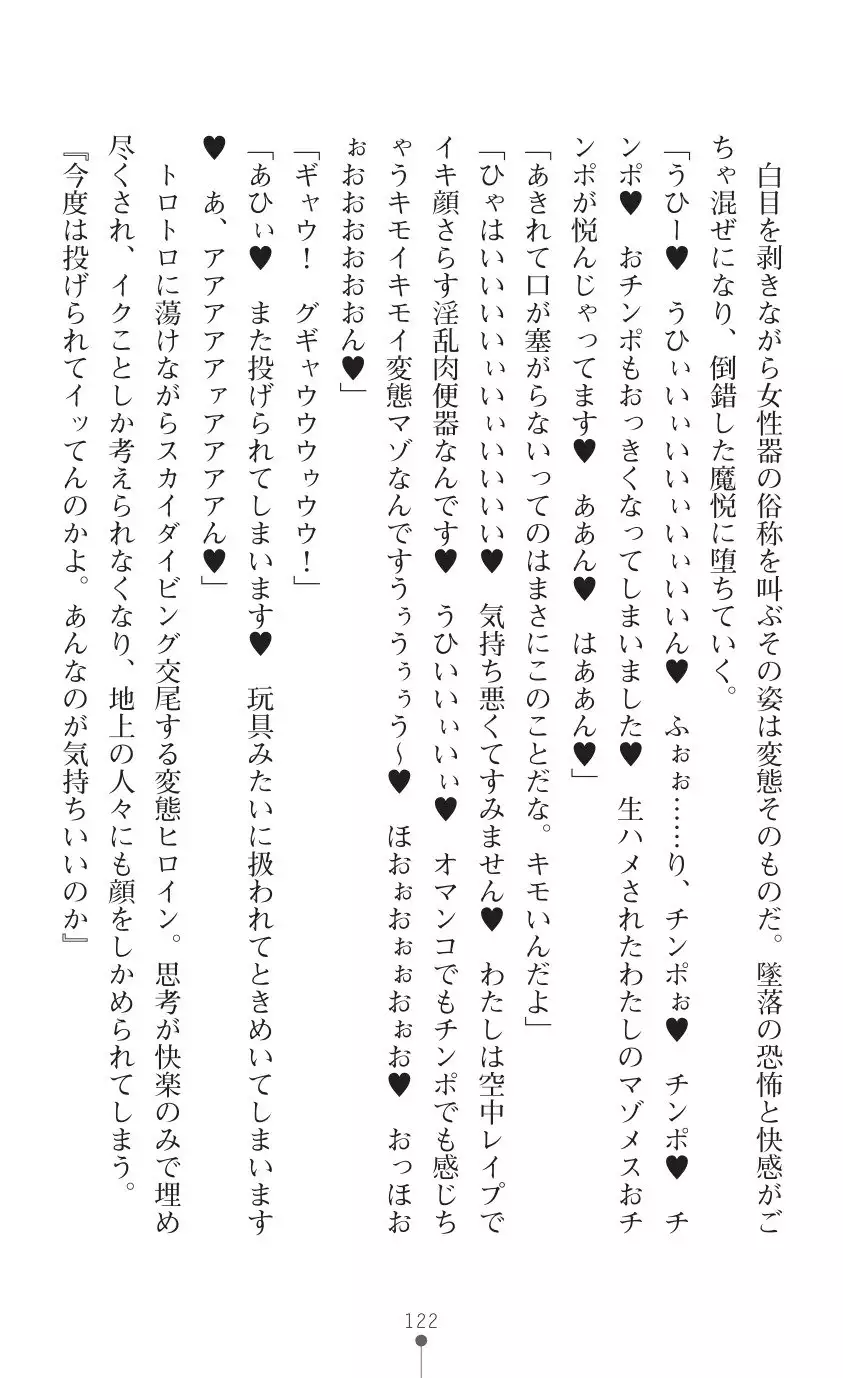 白目を剥きながら女性器の俗称を叫ぶその姿は変態そのものだ。墜落の恐怖と快感がご
ちゃ混ぜになり、倒錯した魔悦に堕ちていく。
「うひー♥　うひぃぃいいいぃいぃいいん♥　ふぉぉ……り、チンポぉ♥　チンポ♥　チ
ンポ♥　おチンポもおっきくなってしまいました♥　生ハメされたわたしのマゾメスおチ
ンポが悦んじゃってます♥　ああん♥　はああん♥」
「あきれて口が塞がらないってのはまさにこのことだな。キモいんだよ」
「ひゃはいいいいぃいぃいいいい♥　気持ち悪くてすみません♥　わたしは空中レイプで
イキ顔さらす淫乱肉便器なんです♥　うひいいぃいぃ♥　オマンコでもチンポでも感じち
ゃうキモイキモイ変態マゾなんですうぅうぅぅう～♥　ほおぉおぉぉおぉお♥　おっほお
ぉおおおおおおん♥」
「ギャウ！　グギャウウウゥウウ！」
「あひぃ♥　また投げられてしまいます♥　玩具みたいに扱われてときめいてしまいます
♥　あ、アアアアアァアアアアん♥」
　トロトロに蕩けながらスカイダイビング交尾する変態ヒロイン。思考が快楽のみで埋め
尽くされ、イクことしか考えられなくなり、地上の人々にも顔をしかめられてしまう。
『今度は投げられてイッてんのかよ。あんなのが気持ちいいのか』
122